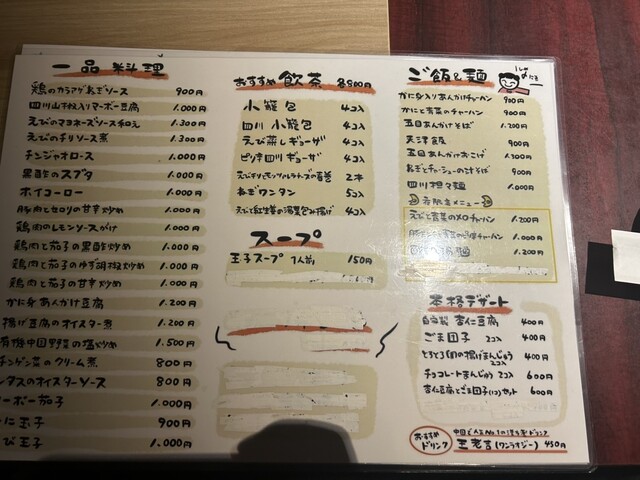 一品料理
鶏のカラアゲねぎソース 900円
四川山椒入りマーボー豆腐 1.000円
えびのマヨネーズソース和え 1.300
えびのチリソース煮 1.300
チンジャオロース 1.000円
黒酢のスブタ 1.000円
ホイコーロー 1.000円
豚肉とセロリの甘辛炒め 1.000円
鶏肉のレモンソースがけ 1.000円
鶏肉と茄子の黒酢炒め 1.000円
鶏肉と茄子のゆず胡椒炒め 1.000円
鶏肉と茄子の甘辛炒め 1.000円
かに身あんかけ豆腐 1.200
揚げ豆腐のオイスター煮 1.200
有機中国野菜の塩炒め 1.500
チンゲン菜のクリーム煮 800円
タスのオイスターソース 800円
ーボー茄子 1.000円
に玉子 900円
び玉子 1.000円
おすすめ飲茶 各800円
小籠包 4コ入
四川小籠包 4コ入
えび蒸しギョーザ 4コ入
ピリ辛四川ギョーザ 4コ入
えびチリとモッツァレラチーズの春巻 2本
ねぎワンタン 5コ入
えびと紅生姜の湯葉包み揚げ 4コ入
スープ
玉子スープ 1人前 150円
ご飯&麺
かに身入りあんかけチャーハン 900円
かにと青菜のチャーハン 900円
五目あんかけそば 1.200円
天津飯 900円
五目あんかけおこげ 1.300円
ねぎとチャーシューの汁そば 900円
四川担々麺 1.000円
メニュー
えびと青菜のXOチャーハン 1.200円
1.000円
麺 1.200円
本格デザート
自家製 杏仁豆腐 400円
ごま団子 2コ入 400円
揚げまんじゅう 2コ入 400円
チョコレートまんじゅう 2コ入 600円
杏仁豆腐とごま団子(1コ)セット 600円
おすすめドリンク
王老吉(ワンラオジー) 450円